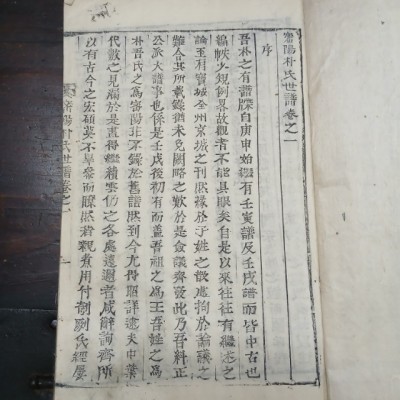 密陽朴氏世譜卷之一
序
吾朴之有譜牒自庚申始繼有壬寅譜及壬戌譜而皆中古也
編帙少規例畧故觀者不能具眼矣自是以來往往有繼述之
論玉利寶城全州京城之刊然豫於子姓之散處拘於論議之
難合其所載錄猶未免闕略之於是僉議齊發此乃吾糾正
公派大譜事也係是壬戌後初有而蓋吾祖之爲王吾姓之爲
朴吾氏之爲密陽非不錄於舊譜然到今尤得照詳遠夫中葉
代數之見編於是畫得繼續雲仍之各處遠邇者咸辭詢齊所
以有古今之宏碩莫不畢擧而瞭然若親煮用付剞劂氏經屢
密陽朴氏世譜卷之一